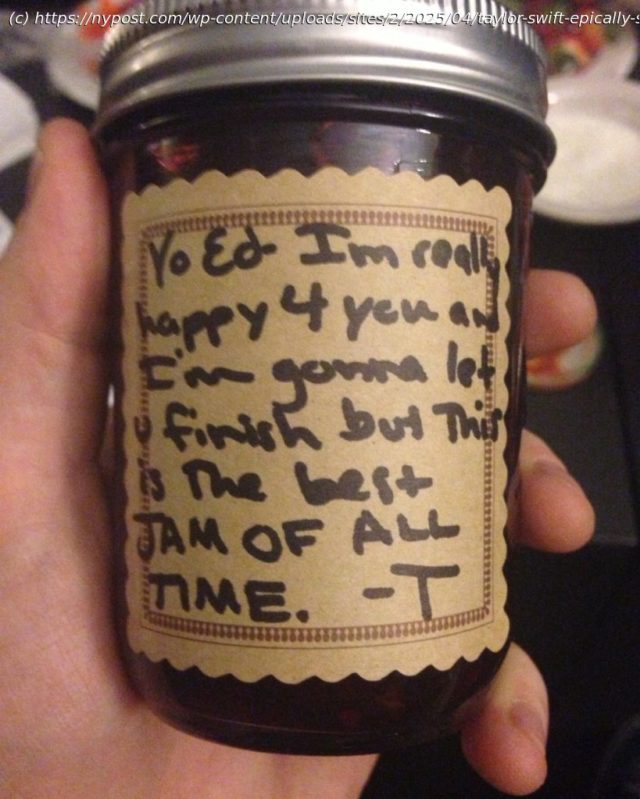 (c) https://nypost.com/wp-content/uploads/sites/2/2025/04/taylor-swift-epically-s
Yo Ed I'm really
happy 4 you an
I'm gonna let
U finish but This
is The best
JAM OF ALL
TIME. -T